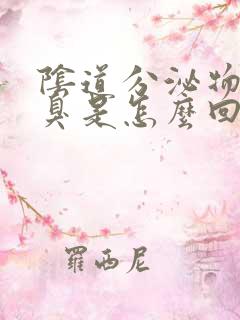 陰道分泌物
臭是怎麼回
羅西尼